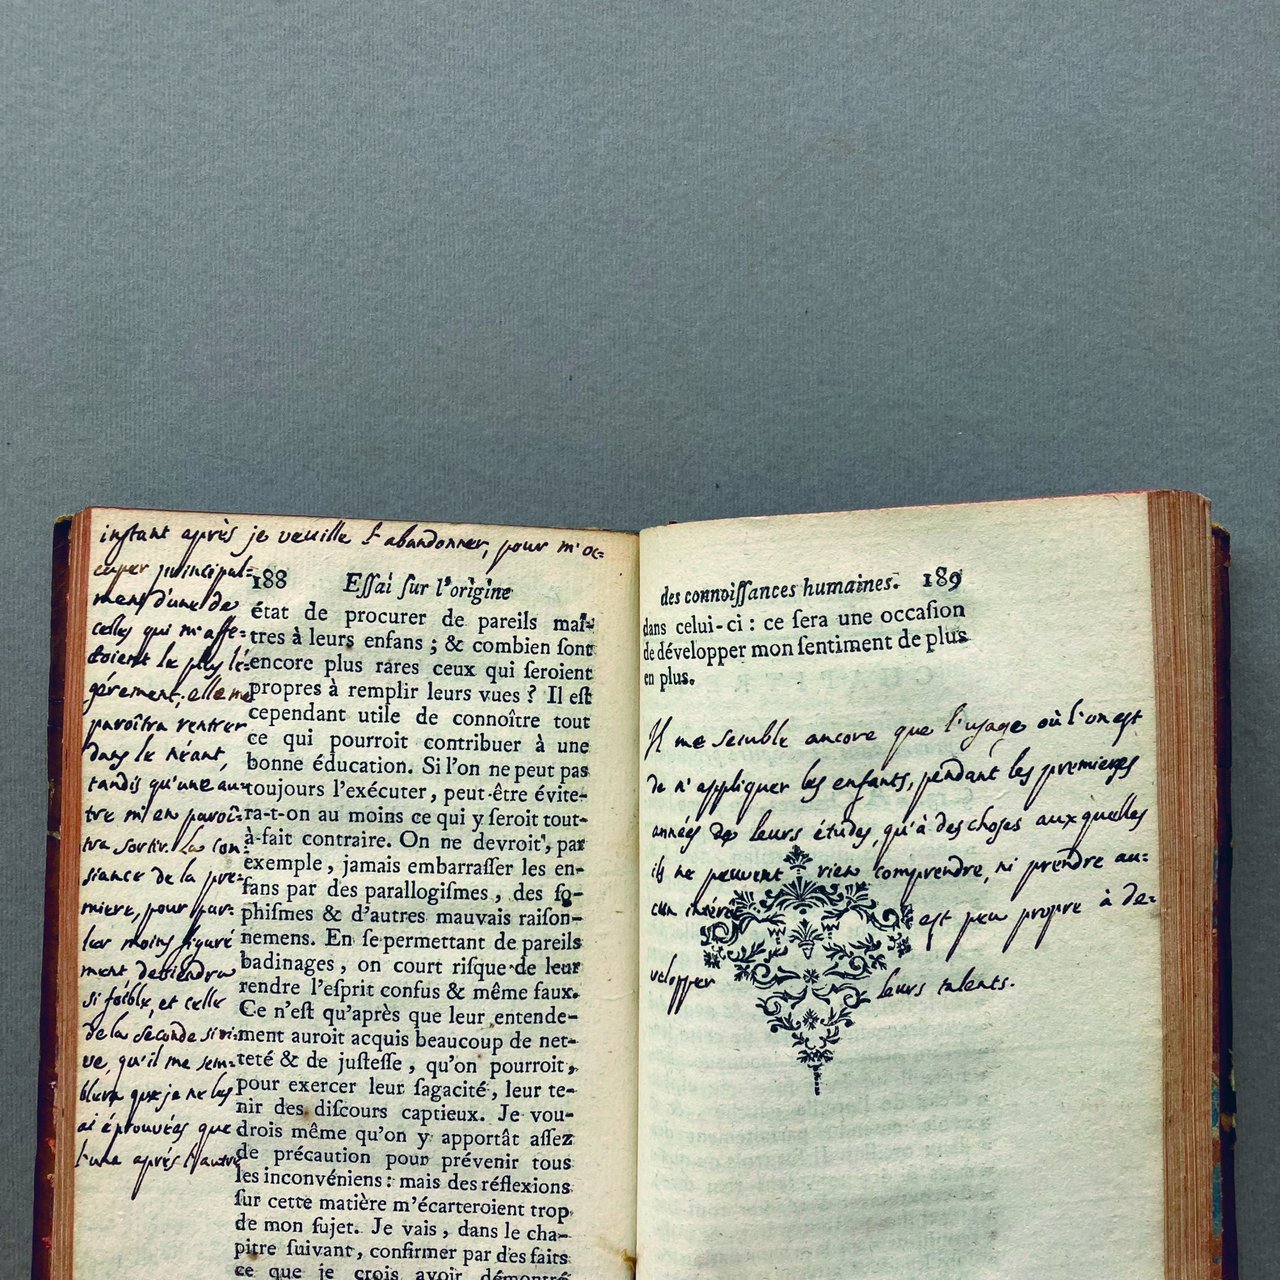 instant après je veuille l'abandonner, pour m'oc=
cuper principal=
ment d'une de
celles qui m'affe=
ctoient le plus lé=
gérement; elle me
paroîtra rentrer
dans le néant,
tandis qu'une au=
tre m'en paroî=
tra sortir. La con=
sciance de la pre=
miere, pour par=
ler moins figuré
ment deviendra
si foible, et celle
de la seconde si vi=
ve, qu'il me sem=
blera que je ne les
ai éprouvées que
l'une après l'autre
188 Eſſai ſur l'origine
état de procurer de pareils maî-
tres à leurs enfans ; & combien ſont
encore plus rares ceux qui ſeroient
propres à remplir leurs vues ? Il eſt
cependant utile de connoître tout
ce qui pourroit contribuer à une
bonne éducation. Si l'on ne peut pas
toujours l'exécuter, peut-être évite-
ra-t-on au moins ce qui y ſeroit tout-
à-fait contraire. On ne devroit, par
exemple, jamais embarraſſer les en-
fans par des parallogiſmes, des ſo-
phiſmes & d'autres mauvais raiſon-
nemens. En ſe permettant de pareils
badinages, on court riſque de leur
rendre l'eſprit confus & même faux.
Ce n'eſt qu'après que leur entende-
ment auroit acquis beaucoup de net-
teté & de juſteſſe, qu'on pourroit,
pour exercer leur ſagacité, leur te-
nir des diſcours captieux. Je vou-
drois même qu'on y apportât aſſez
de précaution pour prévenir tous
les inconvéniens : mais des réflexions
ſur cette matière m'écarteroient trop
de mon ſujet. Je vais, dans le cha-
pitre ſuivant, confirmer par des faits
ce que je crois avoir démontré
des connoiſſances humaines. 189
dans celui-ci : ce ſera une occaſion
de développer mon ſentiment de plus
en plus.
Il me semble encore que l'usage où l'on est
de n'appliquer les enfants, pendant les premieres
années de leurs études, qu'à des choses auxquelles
ils ne peuvent rien comprendre, ni prendre au=
cun intérêt est peu propre à de=
velopper leurs talents.